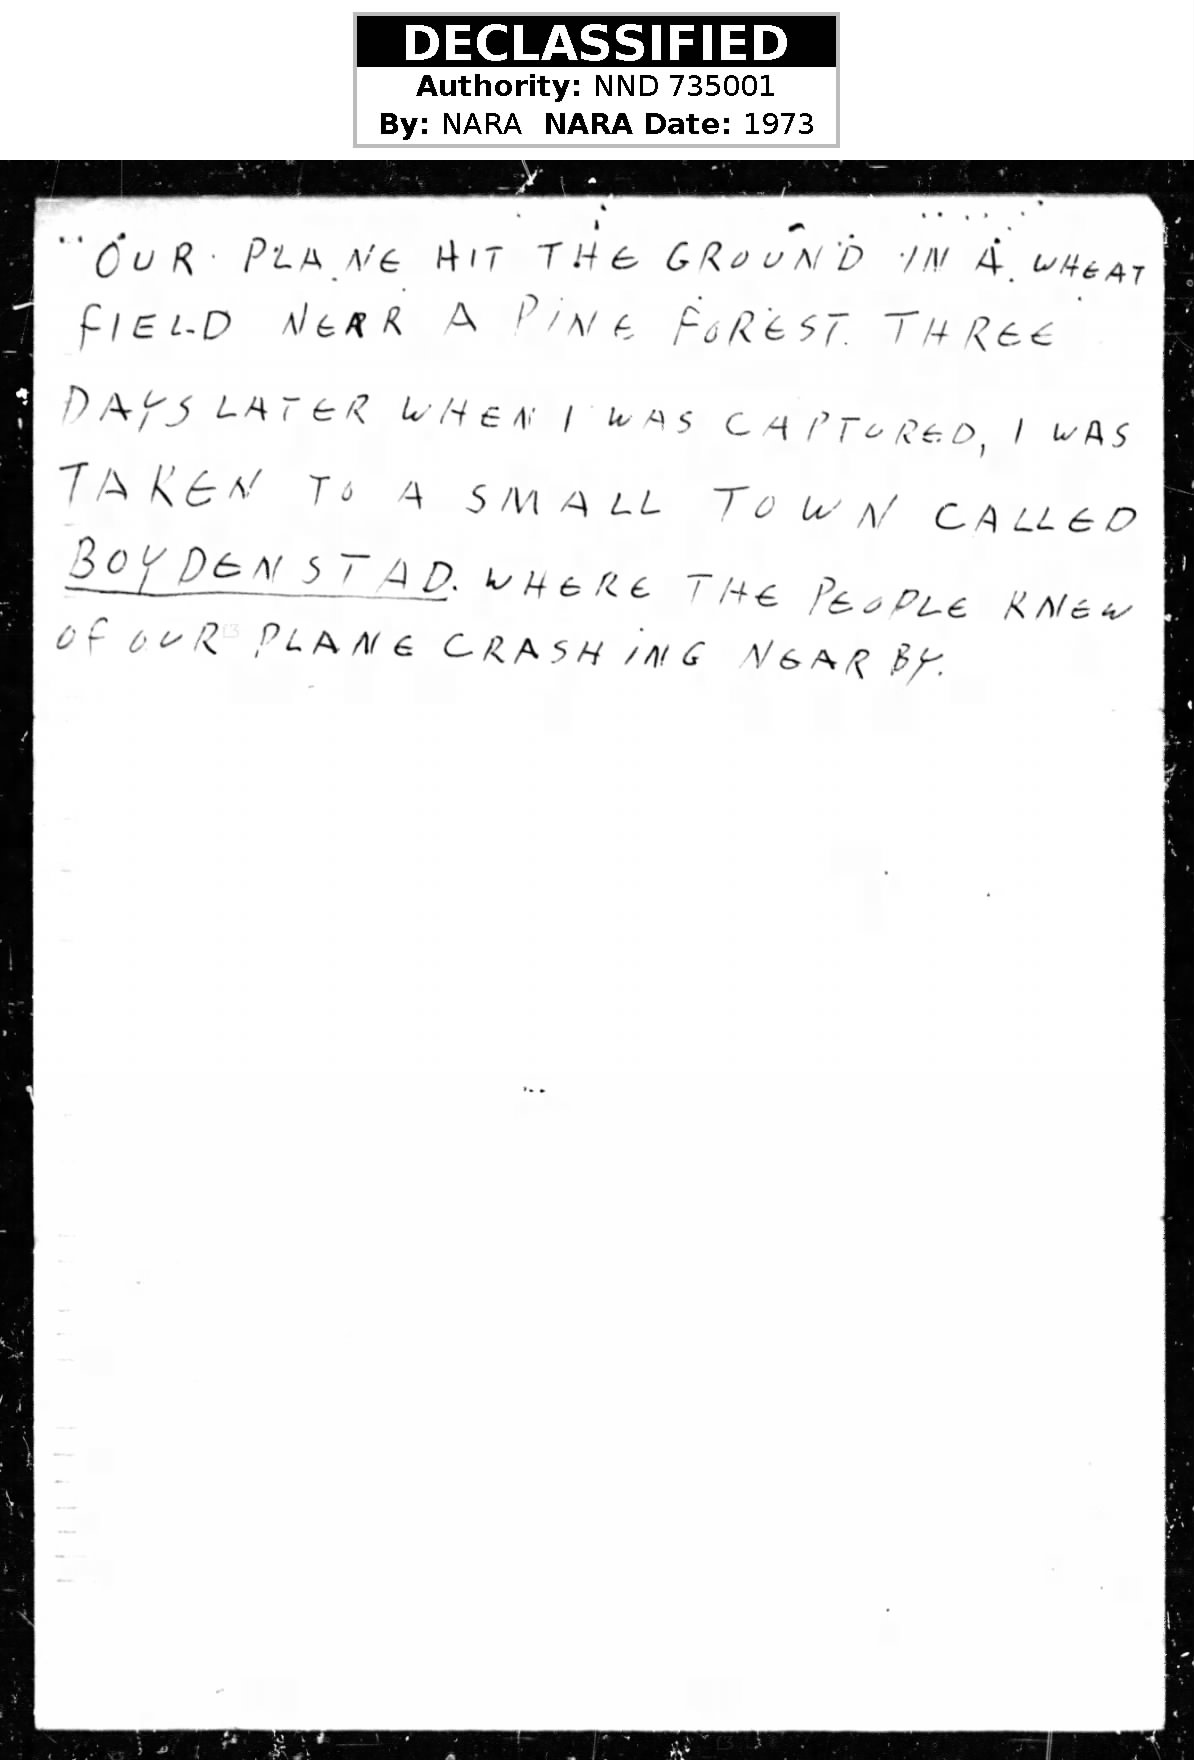 DECLASSIFIED
Authority: NND 735001
By: NARA NARA Date: 1973
OUR PLANE HIT THE GROUND IN A WHEAT
FIELD NEAR A PINE FOREST. THREE
DAYS LATER WHEN I WAS CAPTURED, I WAS
TAKEN TO A SMALL TOWN CALLED
BOYDENSTAD. WHERE THE PEOPLE KNEW
OF OUR PLANE CRASHING NEAR BY.